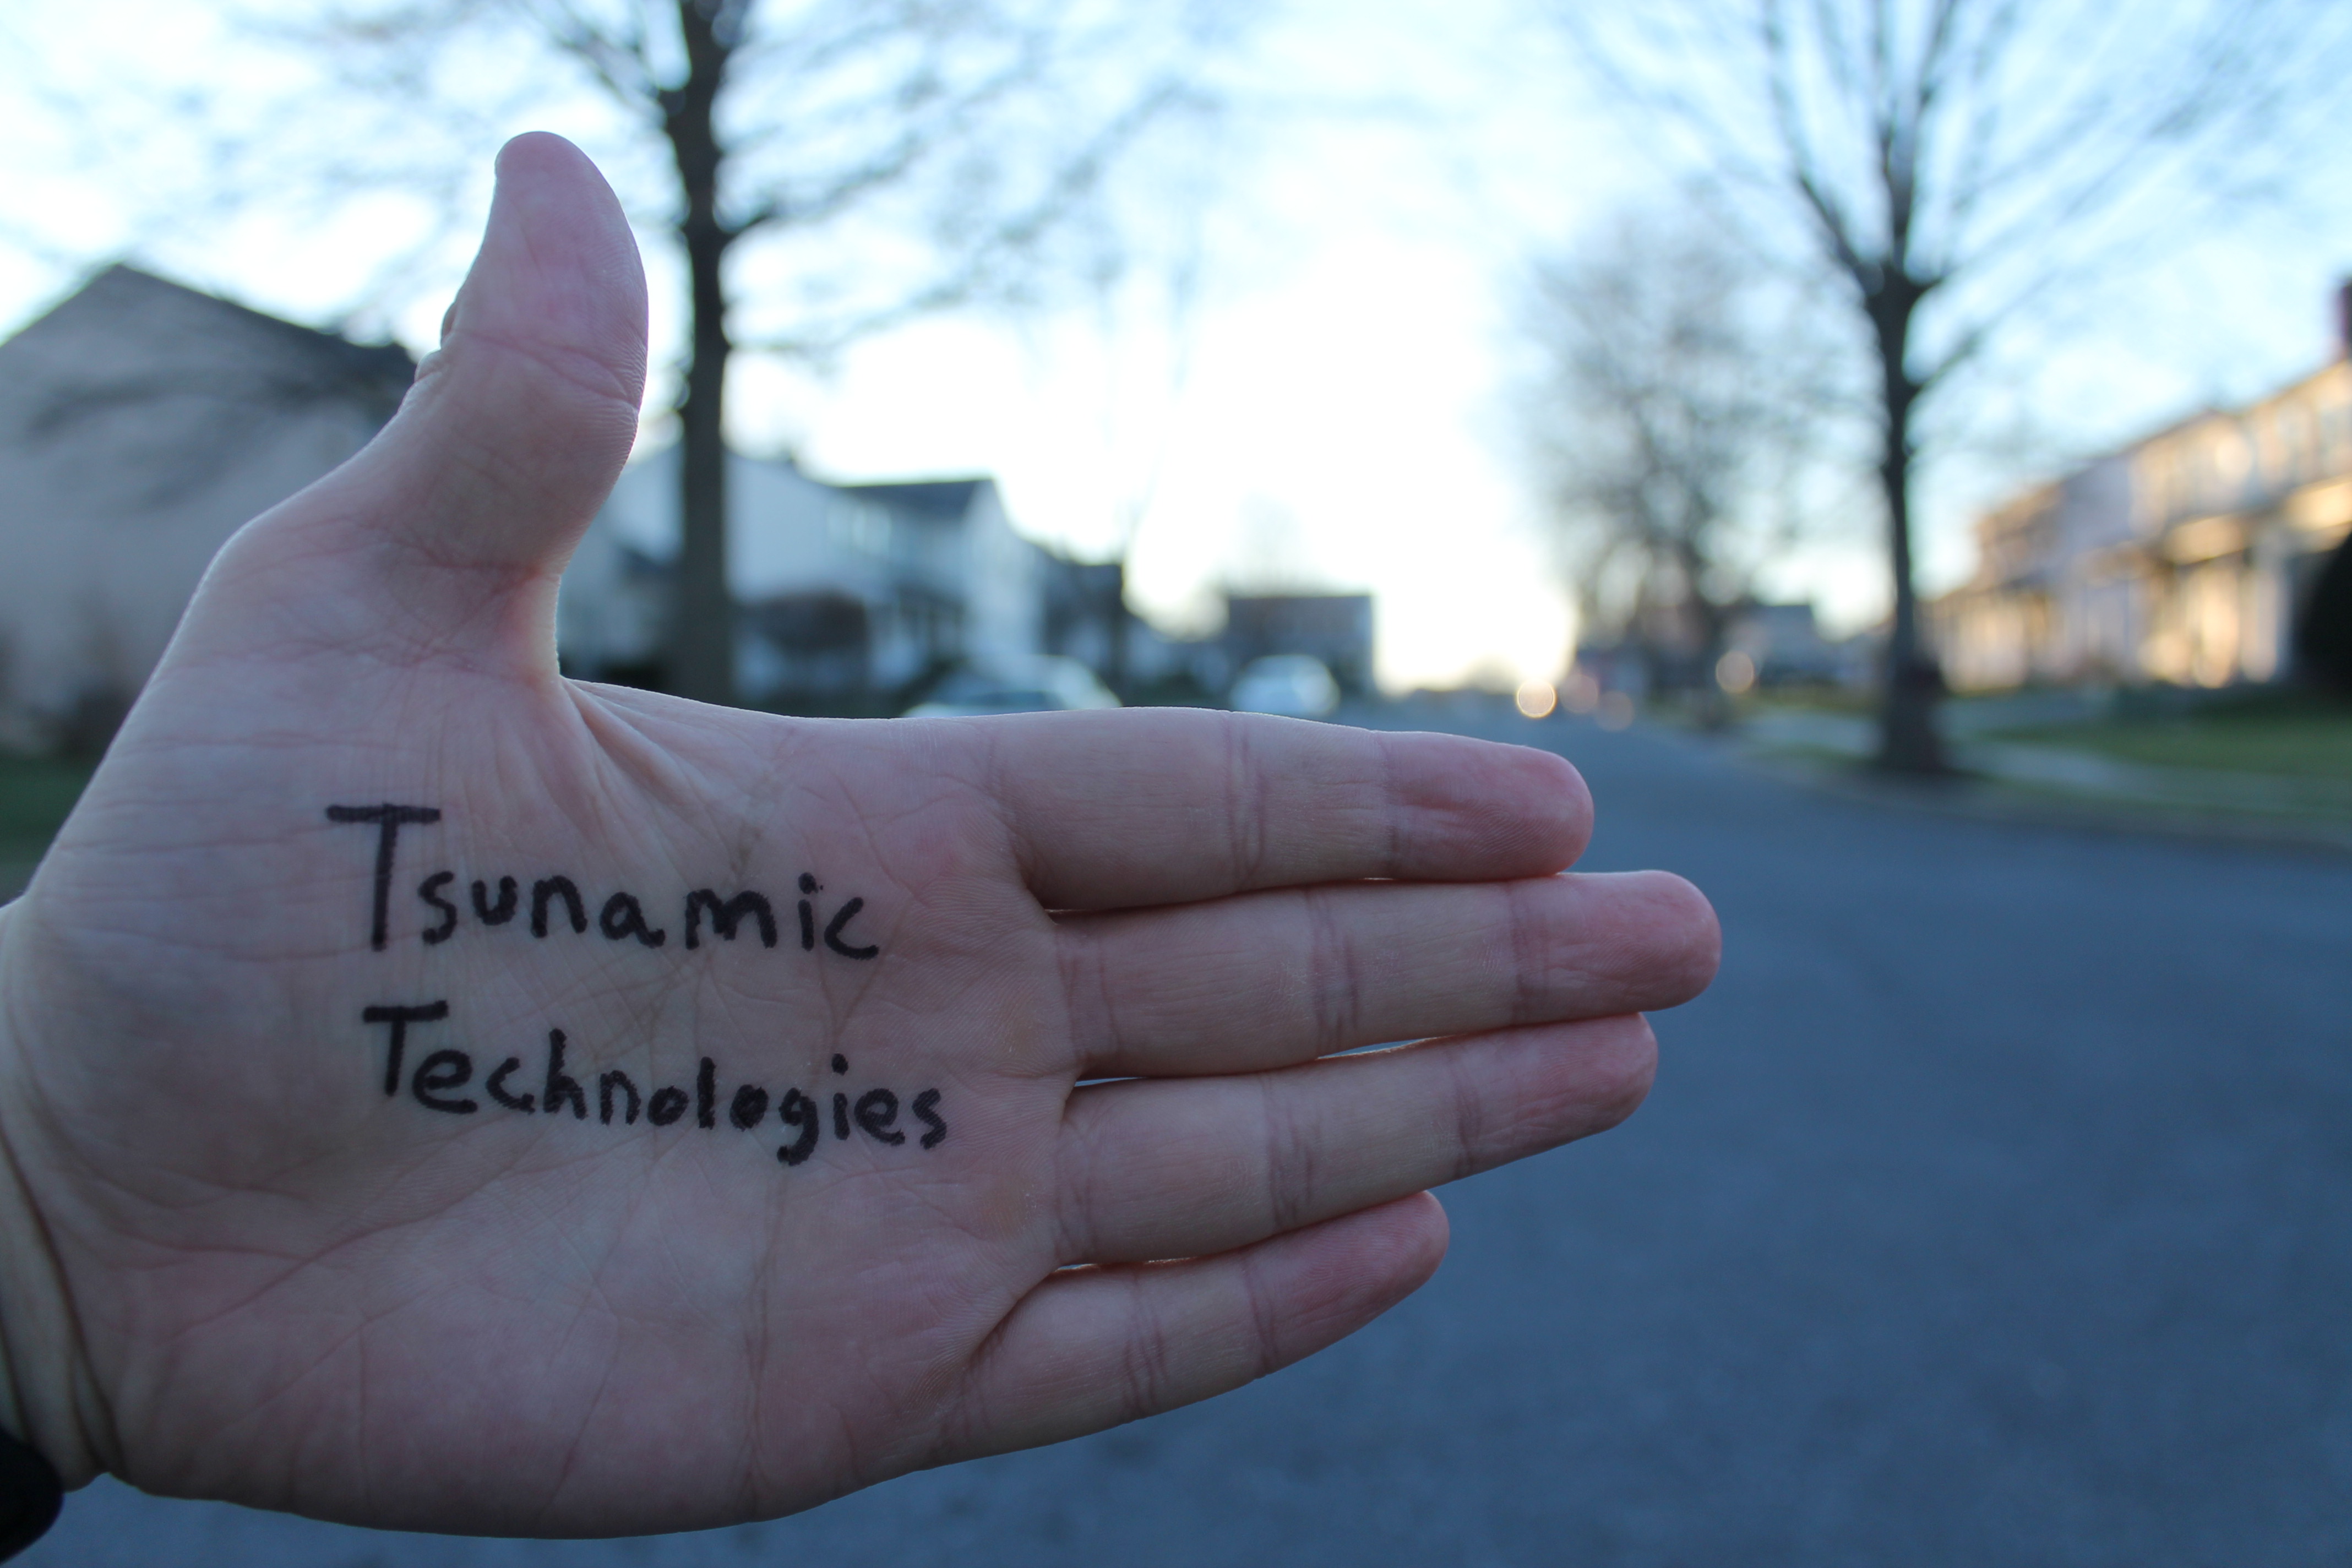 Tsunamic
Technologies